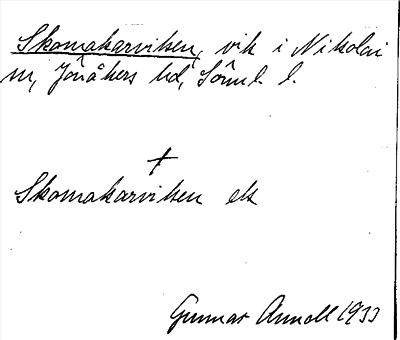 Skomakarviken, vik i Nikolai
sn, Jönåkers hd, Sörml. l.
+
Skomakarviken ek
Gunnar Annell 1933